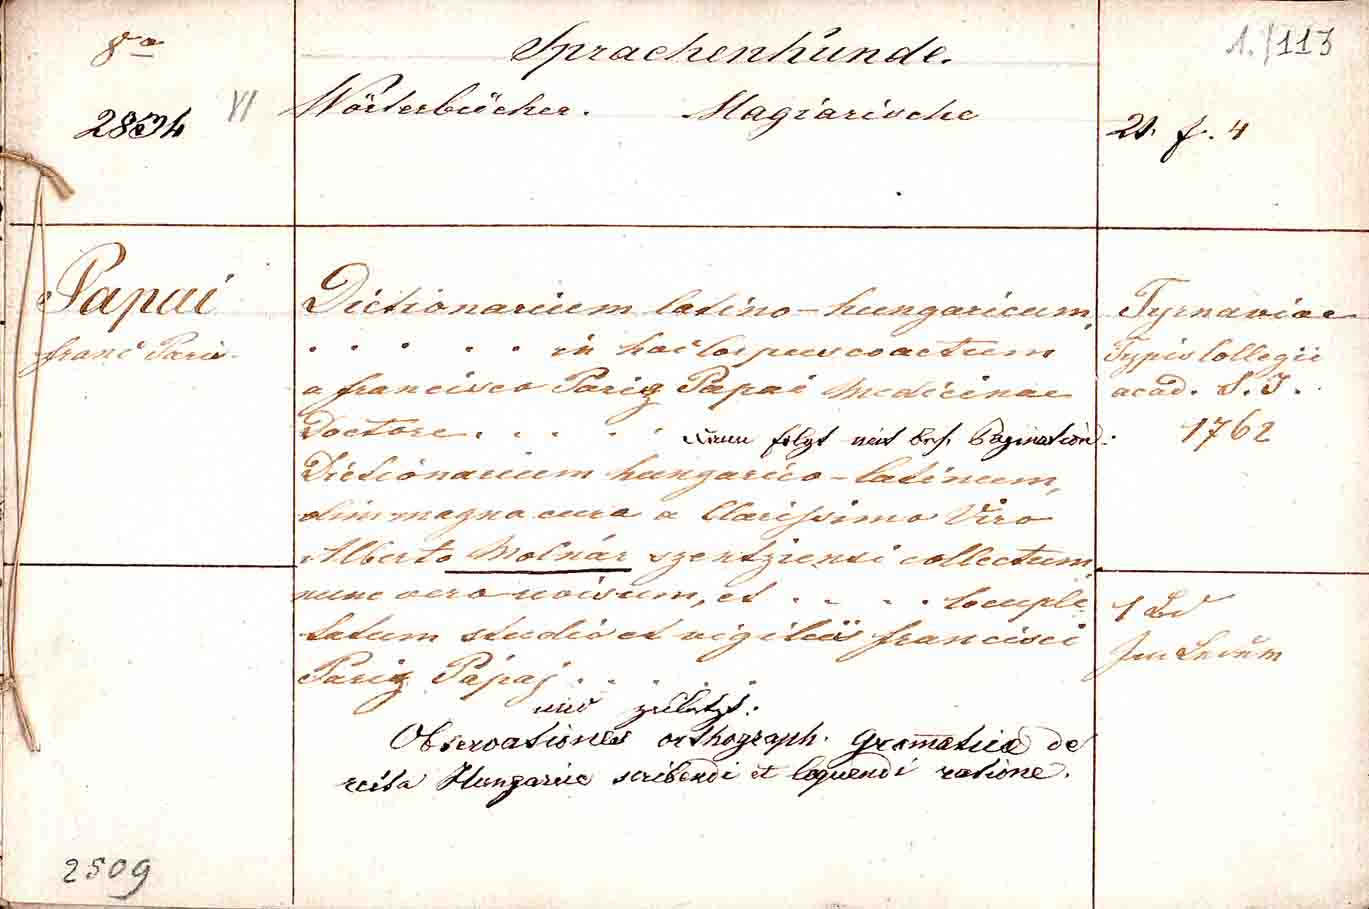 8vo
Sprachenkunde.
1./113
2834
VI
Wörterbücher. Magiarische
21. f. 4
Papai
franc Pariz.
Dictionarium latino-hungaricum,
. . . . . in hoc corpus coactum
a francisco Pariz Papai Medicinae
Doctore. . . . . dann folgt mit bes. Pagination:
Dictionarium hungarico-latinum,
olim magna cura a Clarissimo Viro
Alberto Molnár szentziensi collectum
nunc vero revisum, et . . . . locuple
tatum studio et vigiliis francisci
Pariz Pápaj . . . . . .
und zuletzt:
Observationes orthograph. Gram̅aticae de
recta Hungarice scribendi et loquendi ratione.
Tyrnaviae
Typis Collegii
acad. S. J.
1762
1 Bd
2509